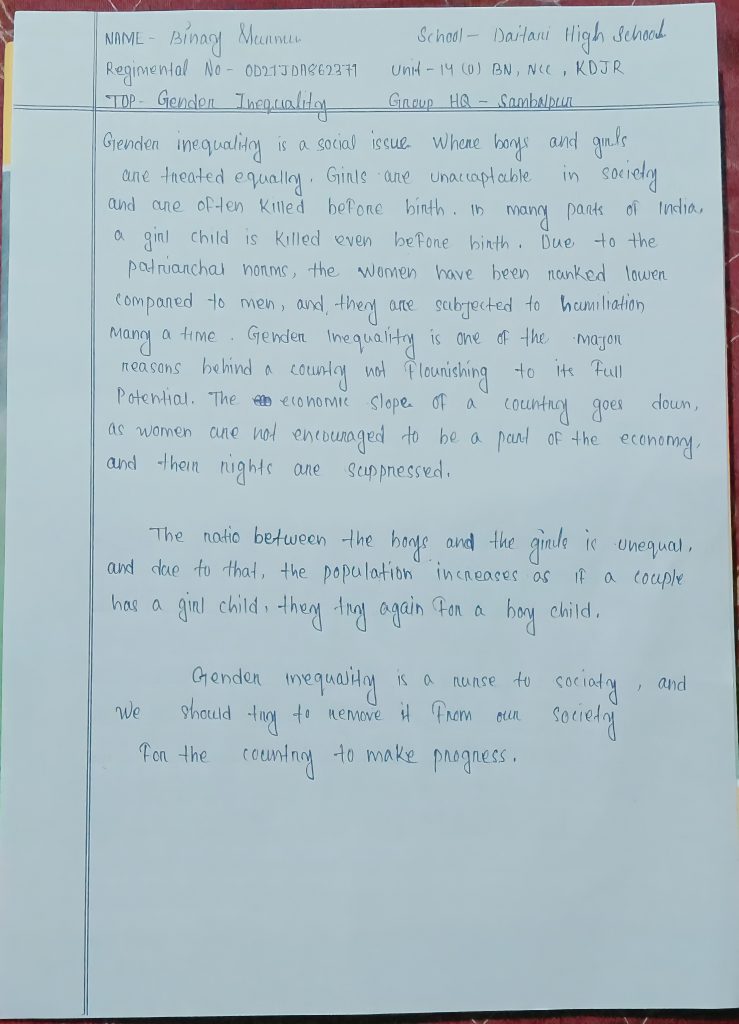 NAME - Binay Murmu School - Daitari High School
Regimental No - OD21JDA862379 Unit - 14 (O) BN, NCC, KDJR
TOP - Gender Inequality Group HQ - Sambalpur
Gender inequality is a social issue where boys and girls
are treated equally. Girls are unaccaptable in society
and are often killed before birth. In many parts of India,
a girl child is killed even before birth. Due to the
patriarchal norms, the women have been ranked lower
compared to men, and they are subjected to humiliation
many a time. Gender Inequality is one of the major
reasons behind a country not flourishing to its full
Potential. The economic slope of a country goes down,
as women are not encouraged to be a part of the economy,
and their rights are suppressed.
The ratio between the boys and the girls is unequal,
and due to that, the population increases as if a couple
has a girl child, they try again for a boy child.
Gender inequality is a nurse to sociaty, and
we should try to remove it from our society
For the country to make progress.